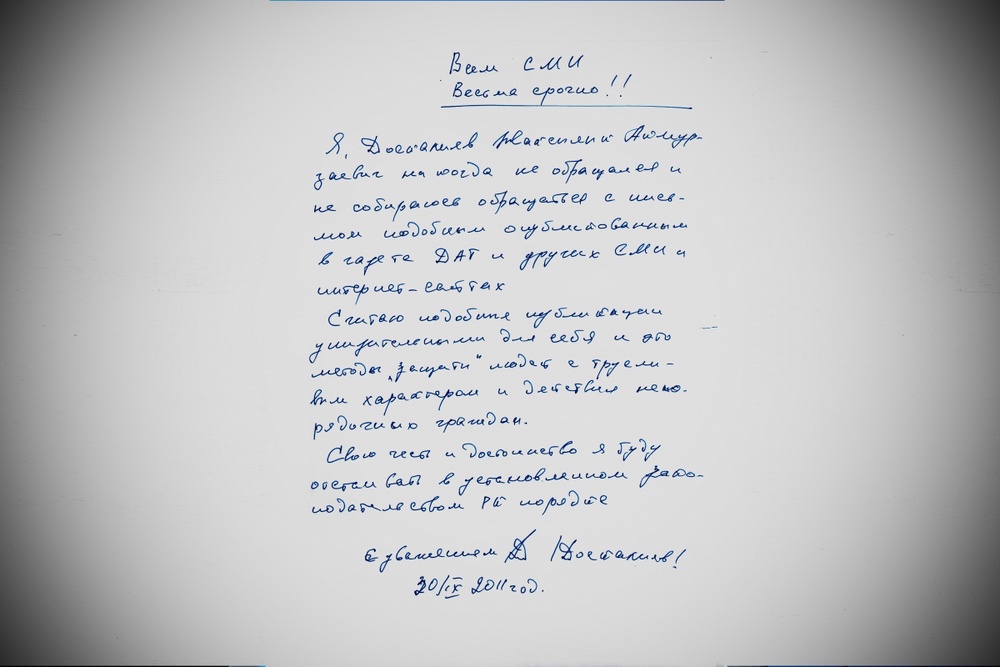 Всем СМИ
Весьма срочно!!
Я, Досталиев Жаксылык Ахмур-
заевич никогда не обращался и
не собираюсь обращаться с пись-
мом подобным опубликованным
в газете ДАТ и других СМИ и
интернет-сайтах
Считаю подобные публикации
унизительными для себя и это
методы „защиты" людей с трусли-
вым характером и действия непо-
рядочных граждан.
Свою честь и достоинство я буду
отстаивать в установленном зако-
нодательством РК порядке
С уважением /Досталиев/
30/IX 2011 год.